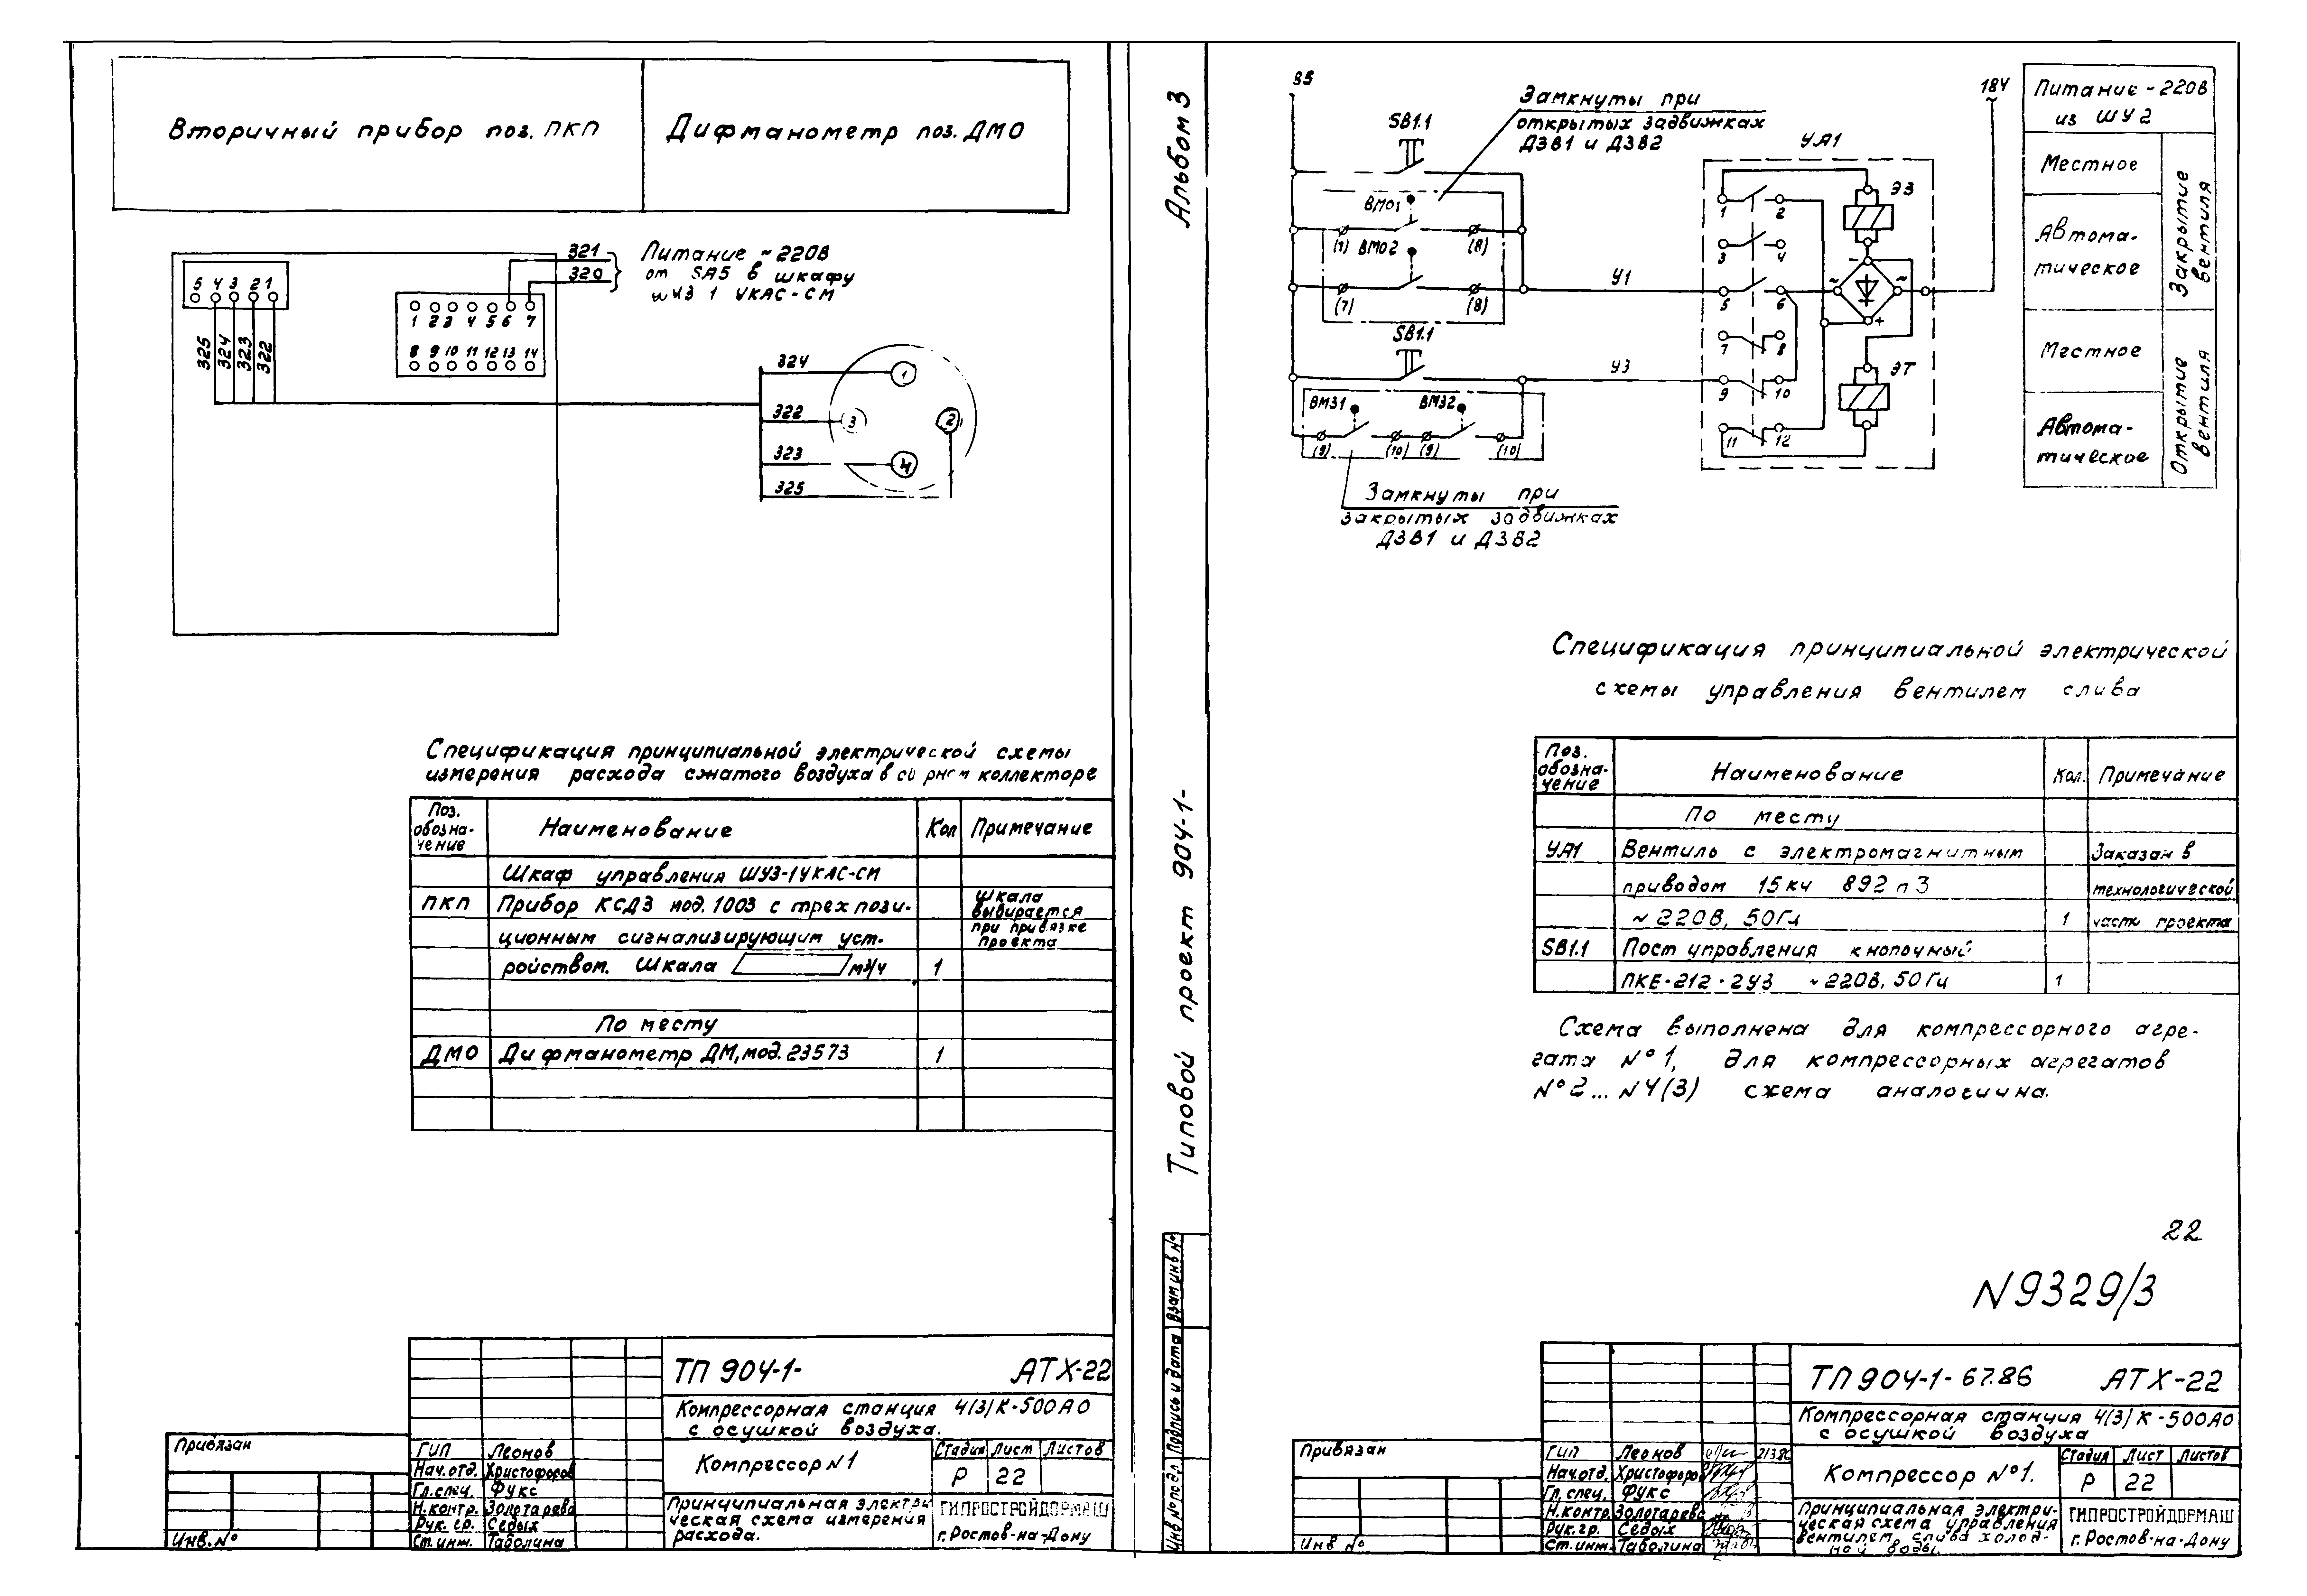 Вторичный прибор поз. ПКП
Дифманометр поз. ДМО
5 4 3 2 1
325
324
323
322
1 2 3 4 5 6 7
8 9 10 11 12 13 14
321
320
Питание ~220В
от SA5 в шкафу
1 УКАС-СМ
324
322
323
325
1
2
3
4
Спецификация принципиальной электрической схемы
измерения расхода сжатого воздуха в коллекторе
Поз. обозна-чение
Наименование
Кол
Примечание
Шкаф управления ШУЗ-1УКАС-СМ
ПКП
Прибор КСД3 мод. 1003 с трехпози-
ционным сигнализирующим уст-
ройством. Шкала м3/ч
1
Шкала
выбирается
при привязке
проекта
По месту
ДМО
Дифманометр ДМ, мод. 23573
1
Привязан
Инв. №
ТП 904-1-
АТХ-22
Компрессорная станция 4(3)К-500АО
с осушкой воздуха.
ГИП Леонов
Нач.отд. Христофоров
Гл. спец. Фукс
Н.контр. Золотарева
Рук. гр. Седых
Ст. инж. Таболина
Компрессор N1
Стадия Лист Листов
Р 22
Принципиальная электри
ческая схема измерения
расхода.
ГИПРОСТРОЙДОРМАШ
г. Ростов-на-Дону
Альбом 3
Типовой проект 904-1-
Инв № подл.
Подпись и дата
Взам инв №
В5
SB1.1
Замкнуты при
открытых задвижках
ДЗВ1 и ДЗВ2
ВМО1
(7)
(8)
ВМО2
(7)
(8)
У1
SB1.1
У3
ВМЗ1
ВМЗ2
(9) (10) (9) (10)
Замкнуты при
закрытых задвижках
ДЗВ1 и ДЗВ2
УА1
1 2
3 4
5 6
7 8
9 10
11 12
ЭЗ
ЭТ
~ - ~ +
184
Питание ~220В
из ШУ2
Местное
Автома-
тическое
Закрытие вентиля
Местное
Автома-
тическое
Открытие вентиля
Спецификация принципиальной электрической
схемы управления вентилем слива
Поз. обозна-чение
Наименование
Кол.
Примечание
По месту
УА1
Вентиль с электромагнитным
Заказан в
приводом 15кч 892п3
технологической
~220В, 50Гц
1
части проекта
SB1.1
Пост управления кнопочный
ПКЕ-212-2У3 ~220В, 50Гц
1
Схема выполнена для компрессорного агре-
гата №1, для компрессорных агрегатов
№2...N4(3) схема аналогична.
22
N9329/3
Привязан
Инв №
ТП 904-1-67.86
АТХ-22
Компрессорная станция 4(3)К-500АО
с осушкой воздуха
ГИП Леонов
Нач.отд. Христофоров
Гл. спец. Фукс
Н.контр. Золотарева
Рук. гр. Седых
Ст. инж. Таболина
Компрессор №1.
Стадия Лист Листов
Р 22
Принципиальная электри-
ческая схема управления
вентилем слива холод-
ной воды.
ГИПРОСТРОЙДОРМАШ
г. Ростов-на-Дону